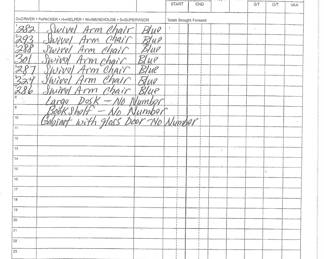 START END O/T O/T
D=DRIVER • P=PACKER • H=HELPER • W=WAREHOUSE • S=SUPERVISOR Totals Brought Forward
282 Swivel Arm Chair Blue
293 Swivel Arm Chair Blue
288 Swivel Arm Chair Blue
301 Swivel Arm Chair Blue
287 Swivel Arm Chair Blue
324 Swivel Arm Chair Blue
286 Swivel Arm Chair Blue
Large Desk - No Number
Book Shelf - No Number
Cabinet with glass Door - No Number